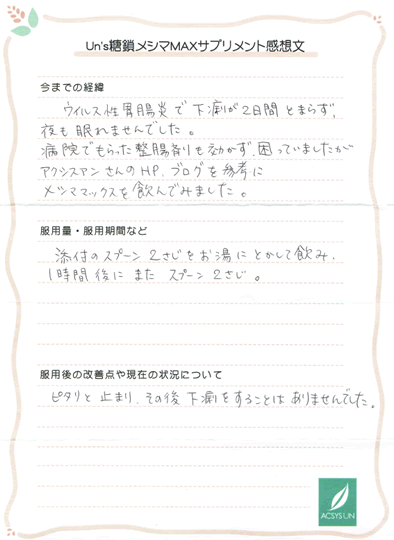 Un's糖鎖メシマMAXサプリメント感想文
今までの経緯
ウイルス性胃腸炎で下痢が2日間とまらず、
夜も眠れませんでした。
病院でもらった整腸剤も効かず、困っていましたが
アクシスアンさんのHP、ブログを参考に
メシママックスを飲んでみました。
服用量・服用期間など
添付のスプーン2さじをお湯にとかして飲み、
1時間後にまたスプーン2さじ。
服用後の改善点や現在の状況について
ピタリと止まり、その後下痢をすることはありませんでした。
ACSYS UN